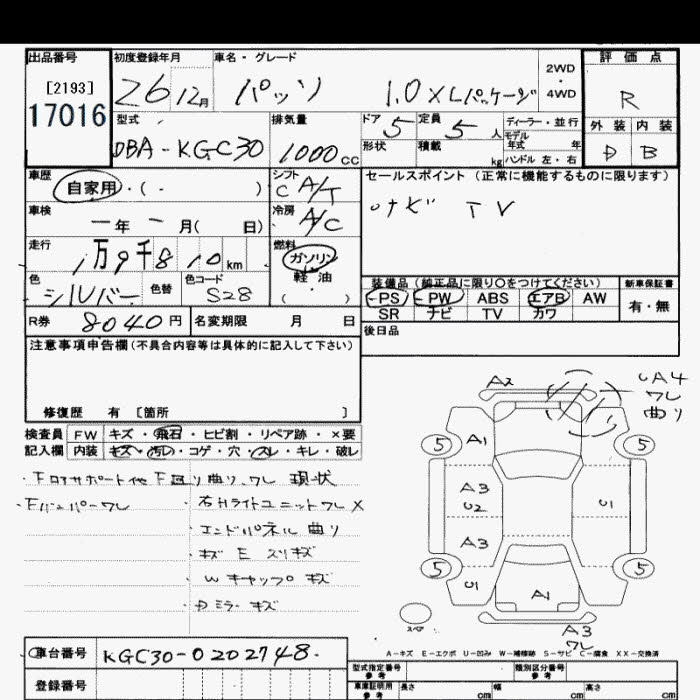 出品番号 初度登録年月 車名・グレード 2WD・4WD 評価点
[2193]
17016 26 12月 パッソ 1.0 XLパッケージ R
型式 排気量 ドア 定員 ディーラー・並行 外装 内装
DBA-KGC30 1000cc 5 5人 モデル年式 年 D B
形状 積載 kg ハンドル 左・右
車歴 シフト セールスポイント (正常に機能するものに限ります)
自家用・( ・ ) C A/T ナビ TV
車検 冷房
一年 一月( 日) A/C
走行 燃料
1万9千810km ガソリン
軽・油
( )
色 色替 色コード 装備品 (純正品に限り○をつけてください) 新車保証書
シルバー S28 PS PW ABS エアB AW 有・無
SR ナビ TV カワ
R券 8040円 名変期限 月 日 後日品
注意事項申告欄(不具合内容等は具体的に記入して下さい)
修復歴 有 [箇所 ]
検査員 FW キズ・飛石・ヒビ割・リペア跡・×要
記入欄 内装 キズ・汚レ・コゲ・穴・スレ・キレ・破レ
・Fロアサポート他 F廻り曲り、ワレ 現状
・Fバンパーワレ ・右Hライトユニットワレ X
・エンドパネル曲り
・キズ E スリキズ
・Wキャップ キズ
・Dミラーキズ
A2 UA4
ワレ
曲り
5 A1 5
A3
U2 U1
A3
5 5
U1 A1
スペア A3
ワレ
A-キズ E-エクボ U-凹み W-補修跡 S-サビ C-腐食 XX-交換済
車台番号 KGC30-0202748
登録番号
型式指定番号 参考 類別区分番号 参考
車庫証明用 参考 長さ cm 幅 cm 高さ cm